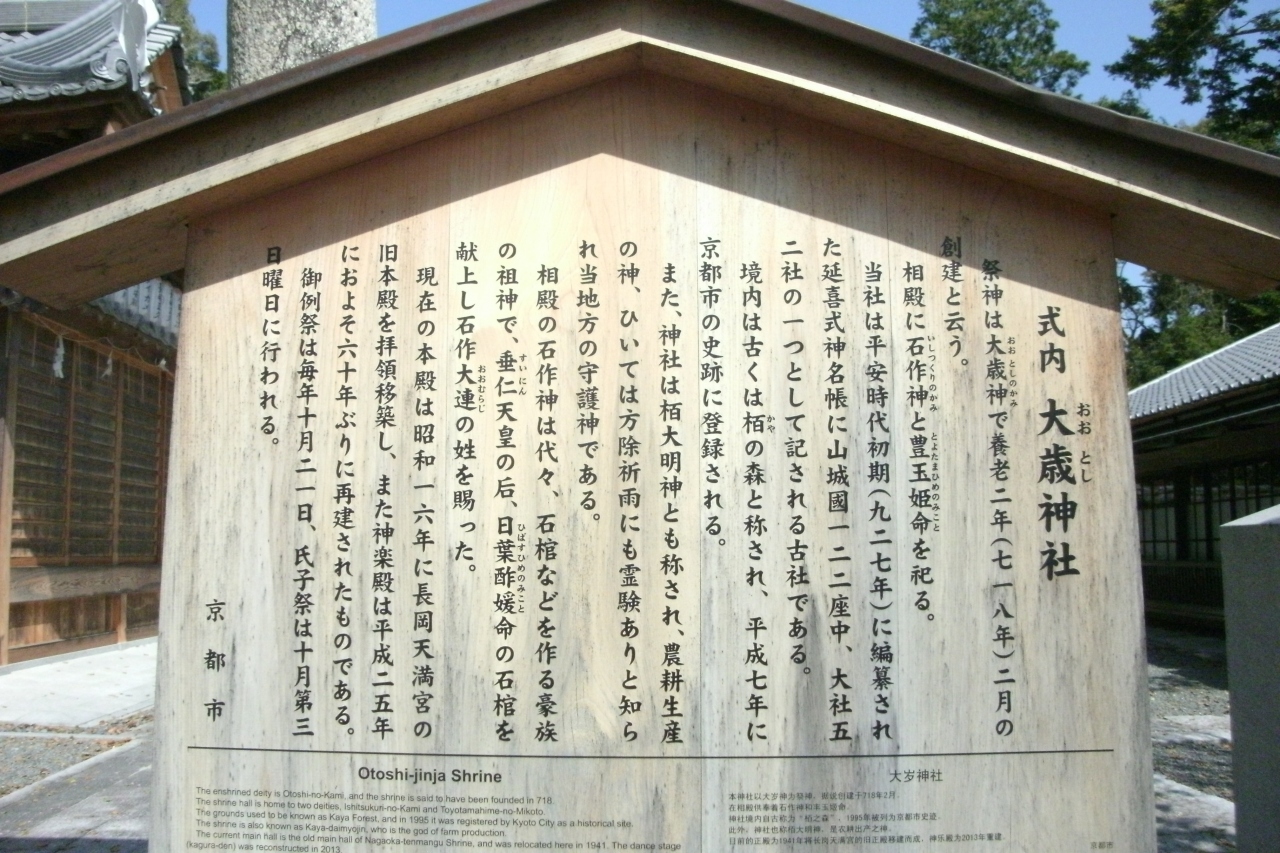 式内 大歳神社
おおとし
祭神は大歳神で養老二年(七一八年)二月の
おおとしのかみ
創建と云う。
相殿に石作神と豊玉姫命を祀る。
いしつくりのかみ とよたまひめのみこと
当社は平安時代初期(九二七年)に編纂され
た延喜式神名帳に山城國一二二座中、大社五
二社の一つとして記される古社である。
境内は古くは栢の森と称され、平成七年に
かや
京都市の史跡に登録される。
また、神社は栢大明神とも称され、農耕生産
の神、ひいては方除祈雨にも霊験ありと知ら
れ当地方の守護神である。
相殿の石作神は代々、石棺などを作る豪族
の祖神で、垂仁天皇の后、日葉酢媛命の石棺を
すいにん ひばすひめのみこと
献上し石作大連の姓を賜った。
おおむらじ
現在の本殿は昭和一六年に長岡天満宮の
旧本殿を拝領移築し、また神楽殿は平成二五年
におよそ六十年ぶりに再建されたものである。
御例祭は毎年十月二一日、氏子祭は十月第三
日曜日に行われる。
京都市
Otoshi-jinja Shrine
The enshrined deity is Otoshi-no-Kami, and the shrine is said to have been founded in 718.
The shrine hall is home to two deities, Ishitsukuri-no-Kami and Toyotamahime-no-Mikoto.
The grounds used to be known as Kaya Forest, and in 1995 it was registered by Kyoto City as a historical site.
The shrine is also known as Kaya-daimyojin, who is the god of farm production.
The current main hall is the old main hall of Nagaoka-tenmangu Shrine, and was relocated here in 1941. The dance stage
(kagura-den) was reconstructed in 2013.
大岁神社
本神社以大岁神为祭神，据说创建于718年2月。
在相殿供奉着石作神和丰玉姬命。
神社境内自古称为“栢之森”，1995年被列为京都市史迹。
此外，神社也称栢大明神，是农耕生产之神。
目前的正殿为1941年将长冈天满宫的旧正殿移建而成，神乐殿为2013年重建。
京都市